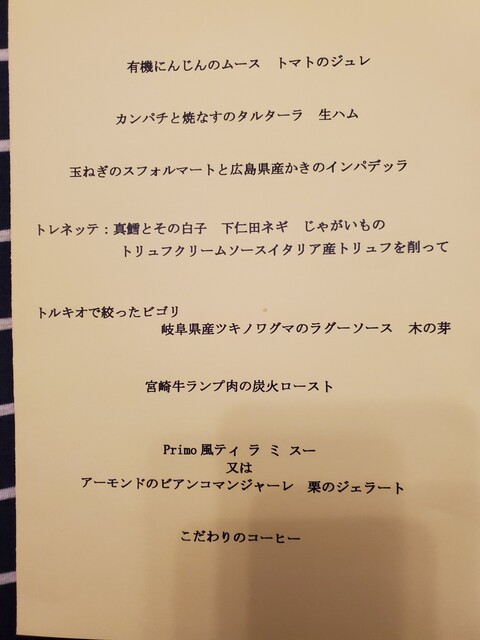 有機にんじんのムース　トマトのジュレ
カンパチと焼なすのタルターラ　生ハム
玉ねぎのスフォルマートと広島県産かきのインパデッラ
トレネッテ：真鱈とその白子　下仁田ネギ　じゃがいもの
トリュフクリームソースイタリア産トリュフを削って
トルキオで絞ったビゴリ
岐阜県産ツキノワグマのラグーソース　木の芽
宮崎牛ランプ肉の炭火ロースト
Primo風ティ ラ ミ スー
又は
アーモンドのビアンコマンジャーレ　栗のジェラート
こだわりのコーヒー